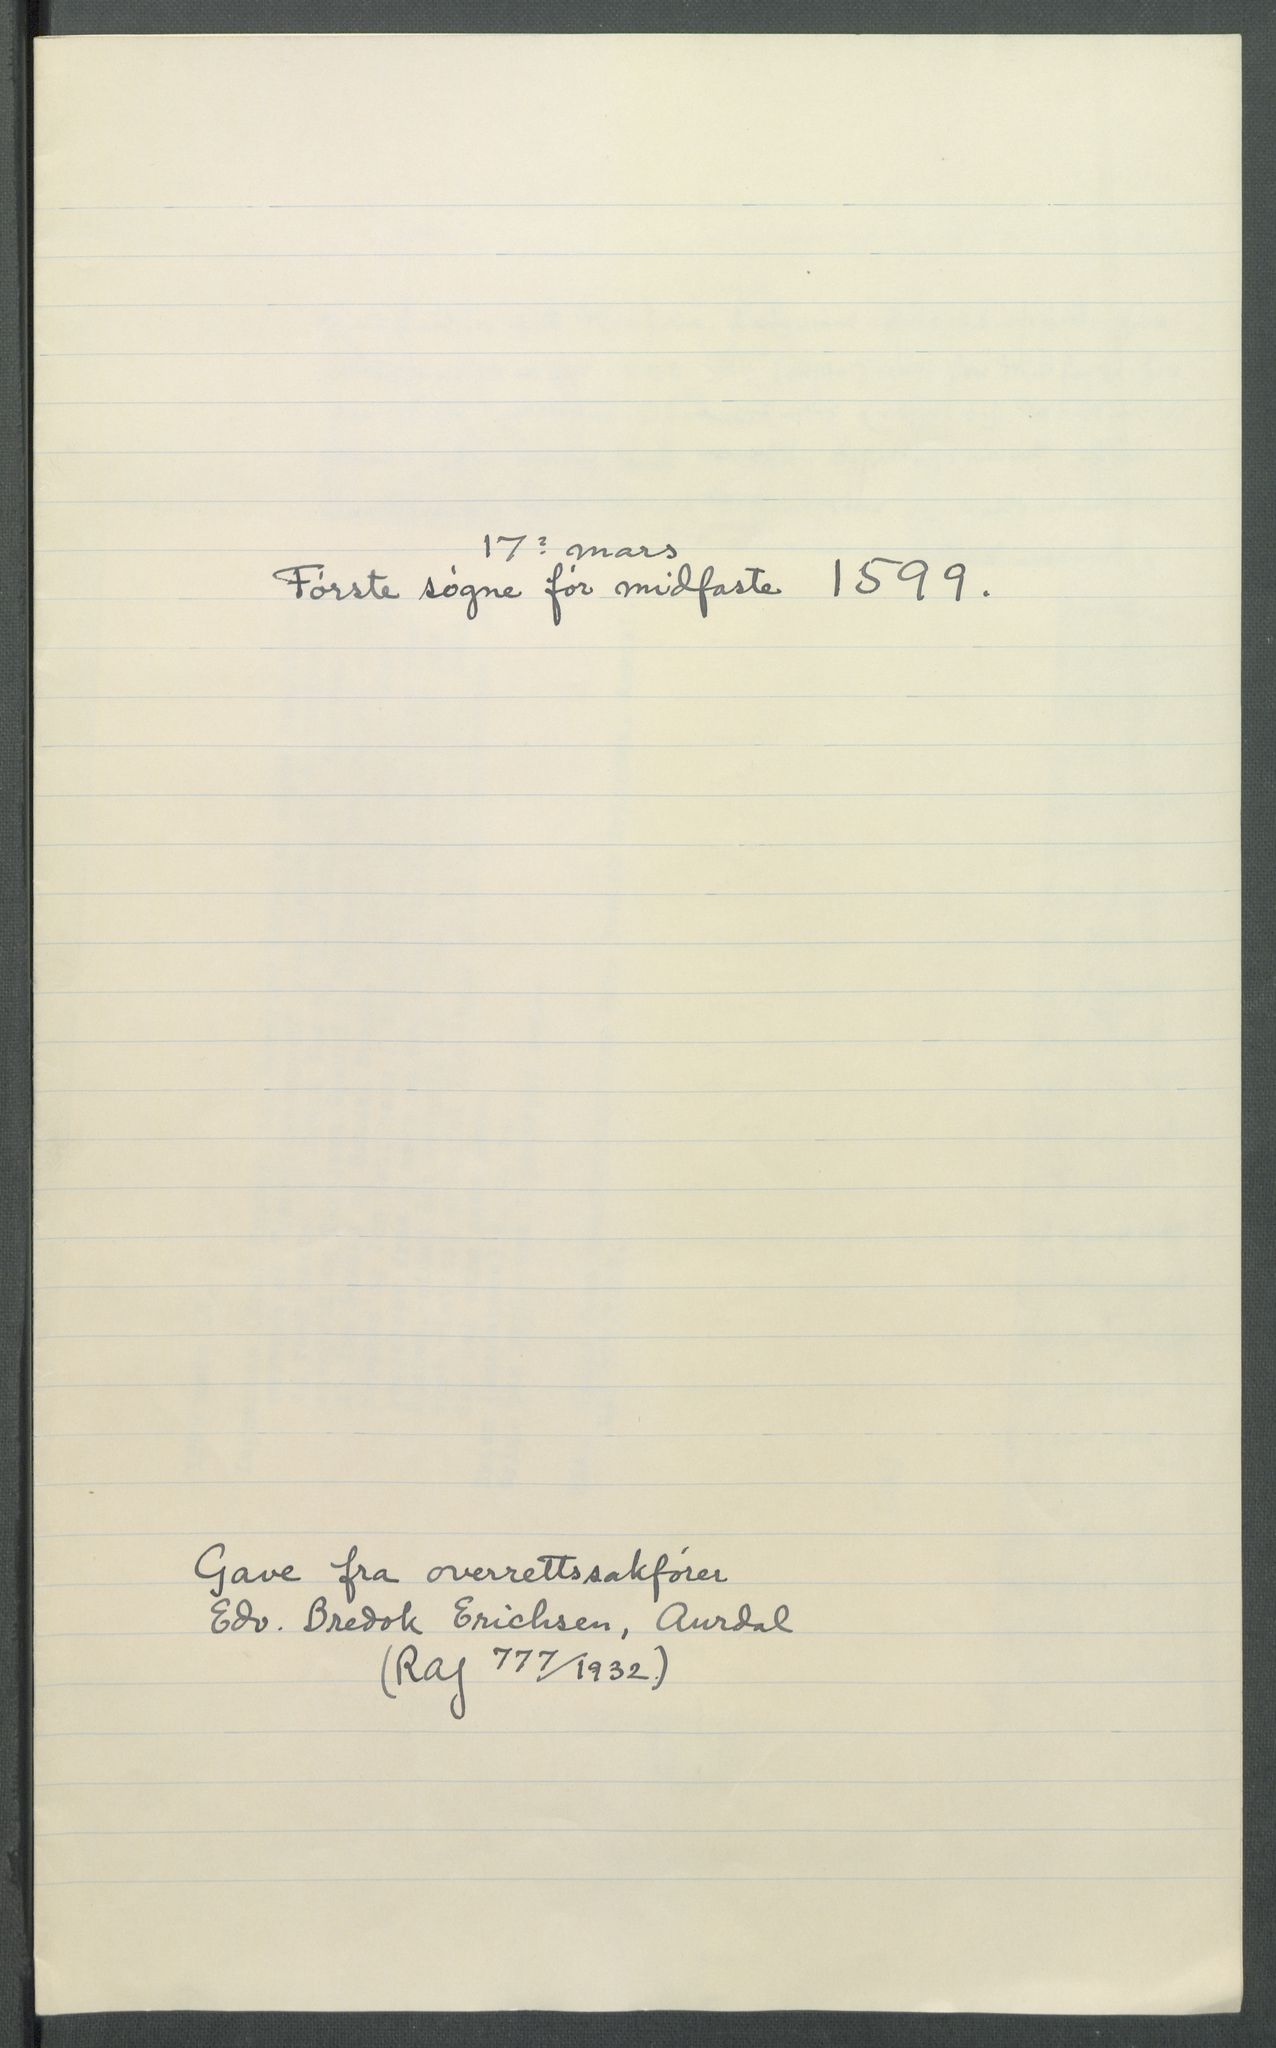 17? mars
Første søgne før midfaste 1599.
Gave fra overrettssakfører
Edv. Bredok Erichsen, Aurdal
(RAJ 777/1932)